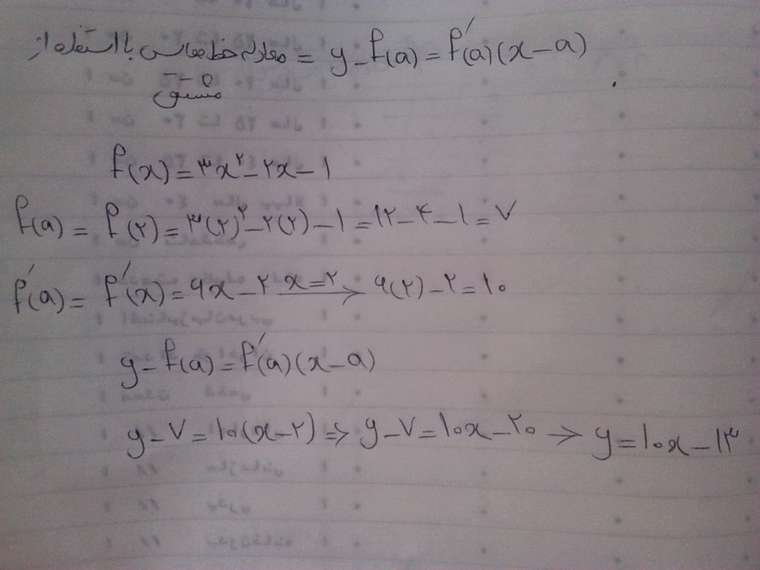 معادله خط مماس با استفاده از = y - f(a) = f′(a)(x - a)
مشتق
f(x) = ۳x^۲ - ۲x - ۱
f(a) = f(۲) = ۳(۲)^۲ - ۲(۲) - ۱ = ۱۲ - ۴ - ۱ = ۷
f′(a) = f′(x) = ۶x - ۲ x=۲→ ۶(۲) - ۲ = ۱۰
y - f(a) = f′(a)(x - a)
y - ۷ = ۱۰(x - ۲) ⇒ y - ۷ = ۱۰x - ۲۰ → y = ۱۰x - ۱۳